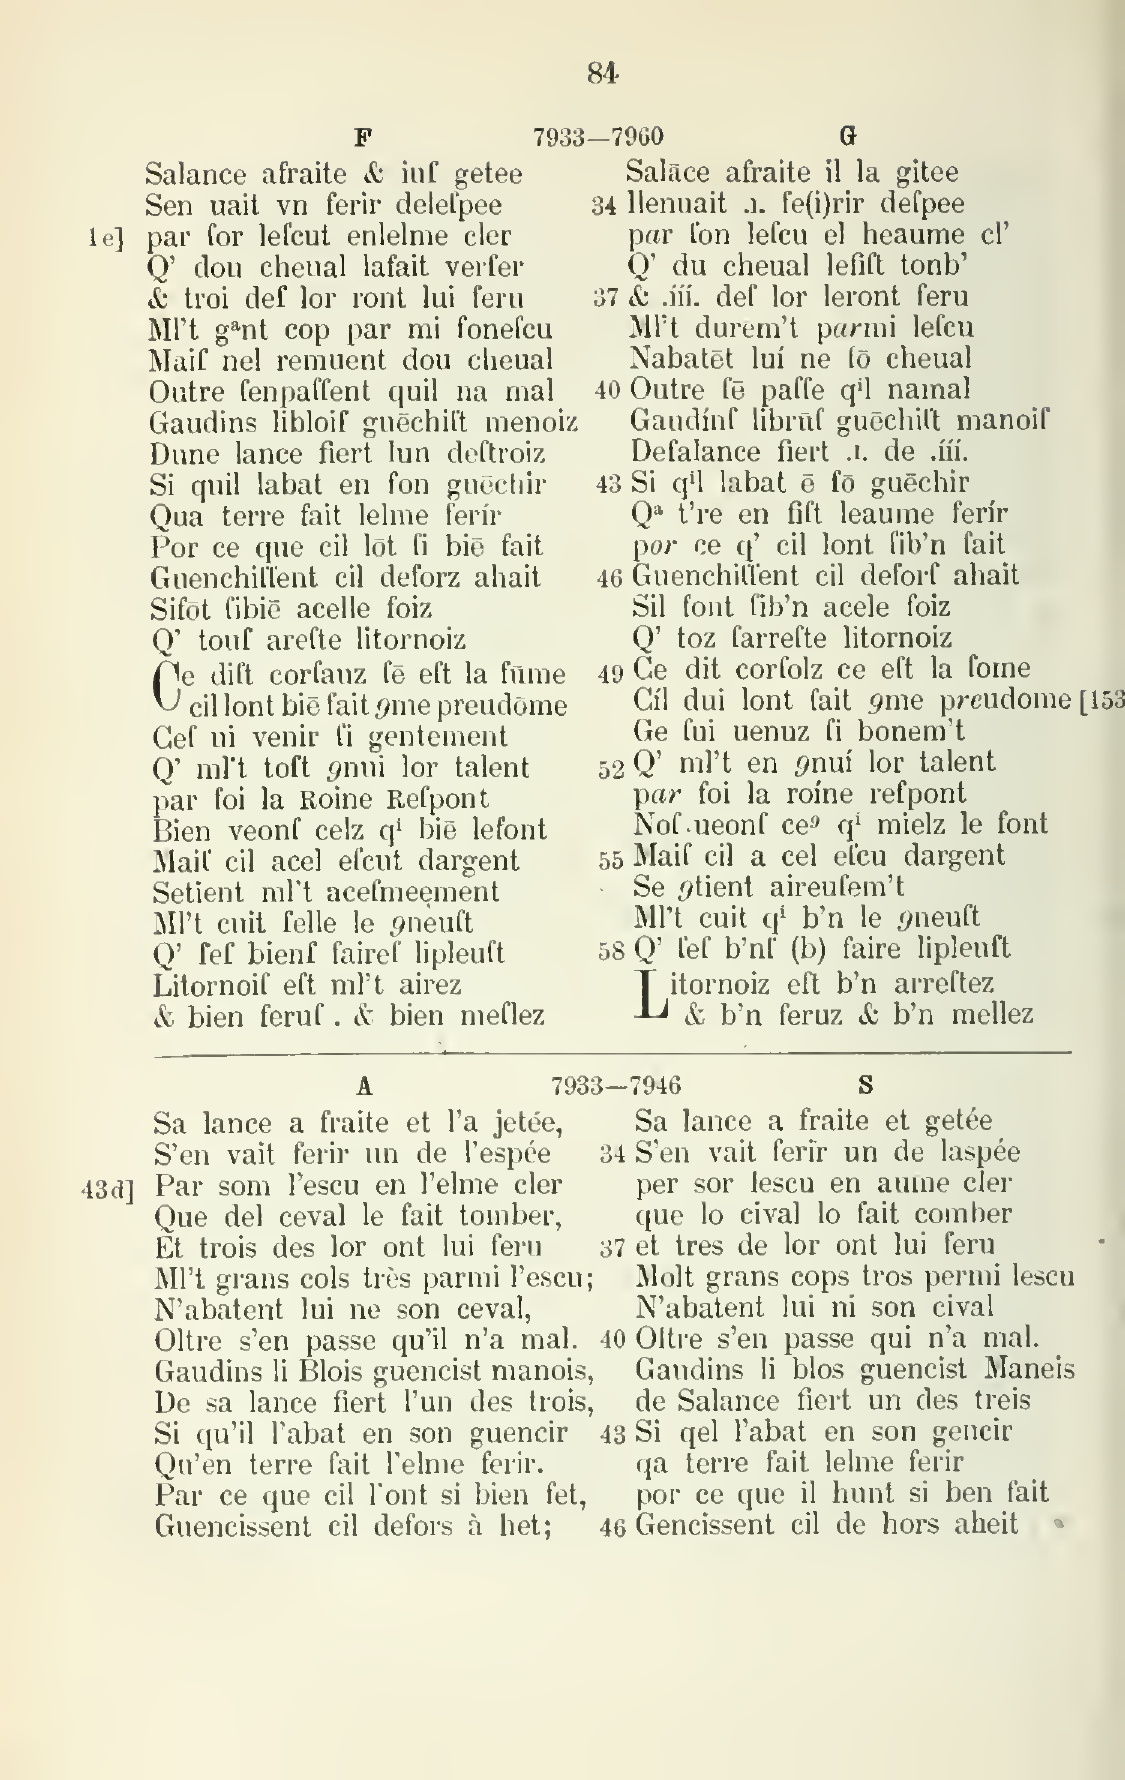 84
F 7933—7960 G
Salance afraite & iuſ getee
Sen uait vn ferir deleſpee
1e] par ſor leſcut enlelme cler
Q’ dou cheual lafait verſer
& troi deſ lor ront lui feru
Ml’t gᵃnt cop par mi ſoneſcu
Maiſ nel remuent dou cheual
Outre ſenpaſſent quil na mal
Gaudins libloiſ guēchiſt menoiz
Dune lance fiert lun deſtroiz
Si quil labat en ſon guēchir
Qua terre fait lelme ferír
Por ce que cil lōt ſi biē fait
Guenchiſſent cil deforz ahait
Sifōt ſibiē acelle foiz
Q’ touſ areſte litornoiz
Ce diſt corſauz ſē eſt la ſūme
cil lont biē fait ꝯme preudōme
Geſ ui venir ſi gentement
Q’ ml’t toſt ꝯnui lor talent
par foi la Roine Reſpont
Bien veonſ celz qⁱ biē lefont
Maiſ cil acel eſcut dargent
Setient ml’t aceſmeement
Ml’t cuit ſelle le ꝯneuſt
Q’ ſeſ bienſ faireſ lipleuſt
Litornoiſ eſt ml’t airez
& bien feruſ . & bien meſlez
Salāce afraite il la gitee
34 Ilenuait .ı. fe(i)rir deſpee
par ſon leſcu el heaume cl’
Q’ du cheual lefiſt tonb’
37 & .ííí. deſ lor leront feru
Ml’t durem’t parmi leſcu
Nabatēt luí ne ſō cheual
40 Outre ſē paſſe qⁱl namal
Gaudínſ librūſ guēchiſt manoiſ
Deſalance fiert .ı. de .ííí.
43 Si qⁱl labat ē ſō guēchir
Qᵃ t’re en fiſt leaume ferír
por ce q’ cil lont ſib’n fait
46 Guenchiſſent cil deforſ ahait
Sil font ſib’n acele foiz
Q’ toz ſarreſte litornoiz
49 Ce dit corſolz ce eſt la ſome
Cíl dui lont fait ꝯme preudome [153
Ge ſui uenuz ſi bonem’t
52 Q’ ml’t en ꝯnuí lor talent
par foi la roíne reſpont
Noſ.ueonſ ceꝰ qⁱ mielz le font
55 Maiſ cil a cel eſcu dargent
Se ꝯtient aireuſem’t
Ml’t cuit qⁱ b’n le ꝯneuſt
58 Q’ ſeſ b’nſ (b) faire lipleuſt
Litornoiz eſt b’n arreſtez
& b’n feruz & b’n mellez
A 7933—7946 S
Sa lance a fraite et l’a jetée,
S’en vait ferir un de l’espée
43d] Par som l’escu en l’elme cler
Que del ceval le fait tomber,
Et trois des lor ont lui feru
Ml’t grans cols très parmi l’escu;
N’abatent lui ne son ceval,
Oltre s’en passe qu’il n’a mal.
Gaudins li Blois guencist manois,
De sa lance fiert l’un des trois,
Si qu’il l’abat en son guencir
Qu’en terre fait l’elme ferir.
Par ce que cil l’ont si bien fet,
Guencissent cil defors à het;
Sa lance a fraite et getée
34 S’en vait ferir un de laspée
per sor lescu en aume cler
que lo cival lo fait comber
37 et tres de lor ont lui feru
Molt grans cops tros permi lescu
N’abatent lui ni son cival
40 Oltre s’en passe qui n’a mal.
Gaudins li blos guencist Maneis
de Salance fiert un des treis
43 Si qel l’abat en son gencir
qa terre fait lelme ferir
por ce que il hunt si ben fait
46 Gencissent cil de hors aheit